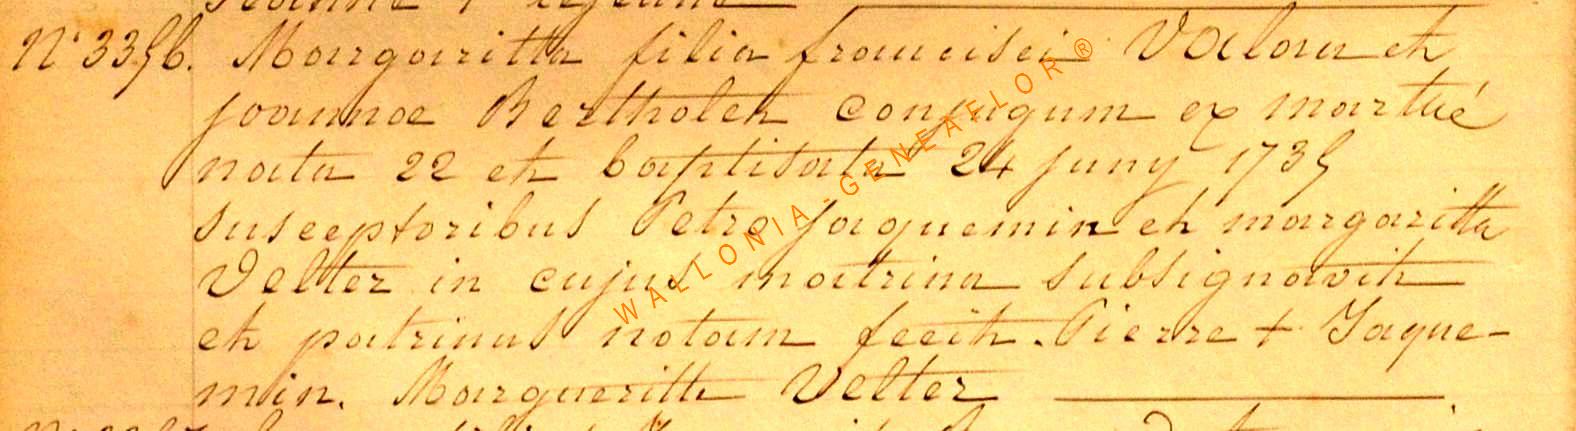 Joannes + Lejeune
N° 3356. Margaritta filia francisci Valon et
joannae Bertholet conjugum ex martué
nata 22 et baptisata 24 juny 1735
susceptoribus Petro jaquemin et margaritta
Velter in cujus matrina subsignavit
et patrinus notam fecit. Pierre + Jaque-
min. Margueritte Velter
WALLONIA-GENEAFLOR®